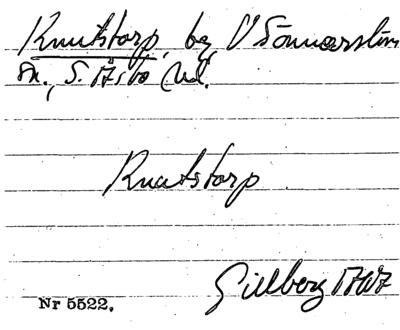 Knutstorp, by, V Sönnarslövs
sn., S. Åsbo hd.
Knutstorp
Gillberg 1767
Nr 5522.